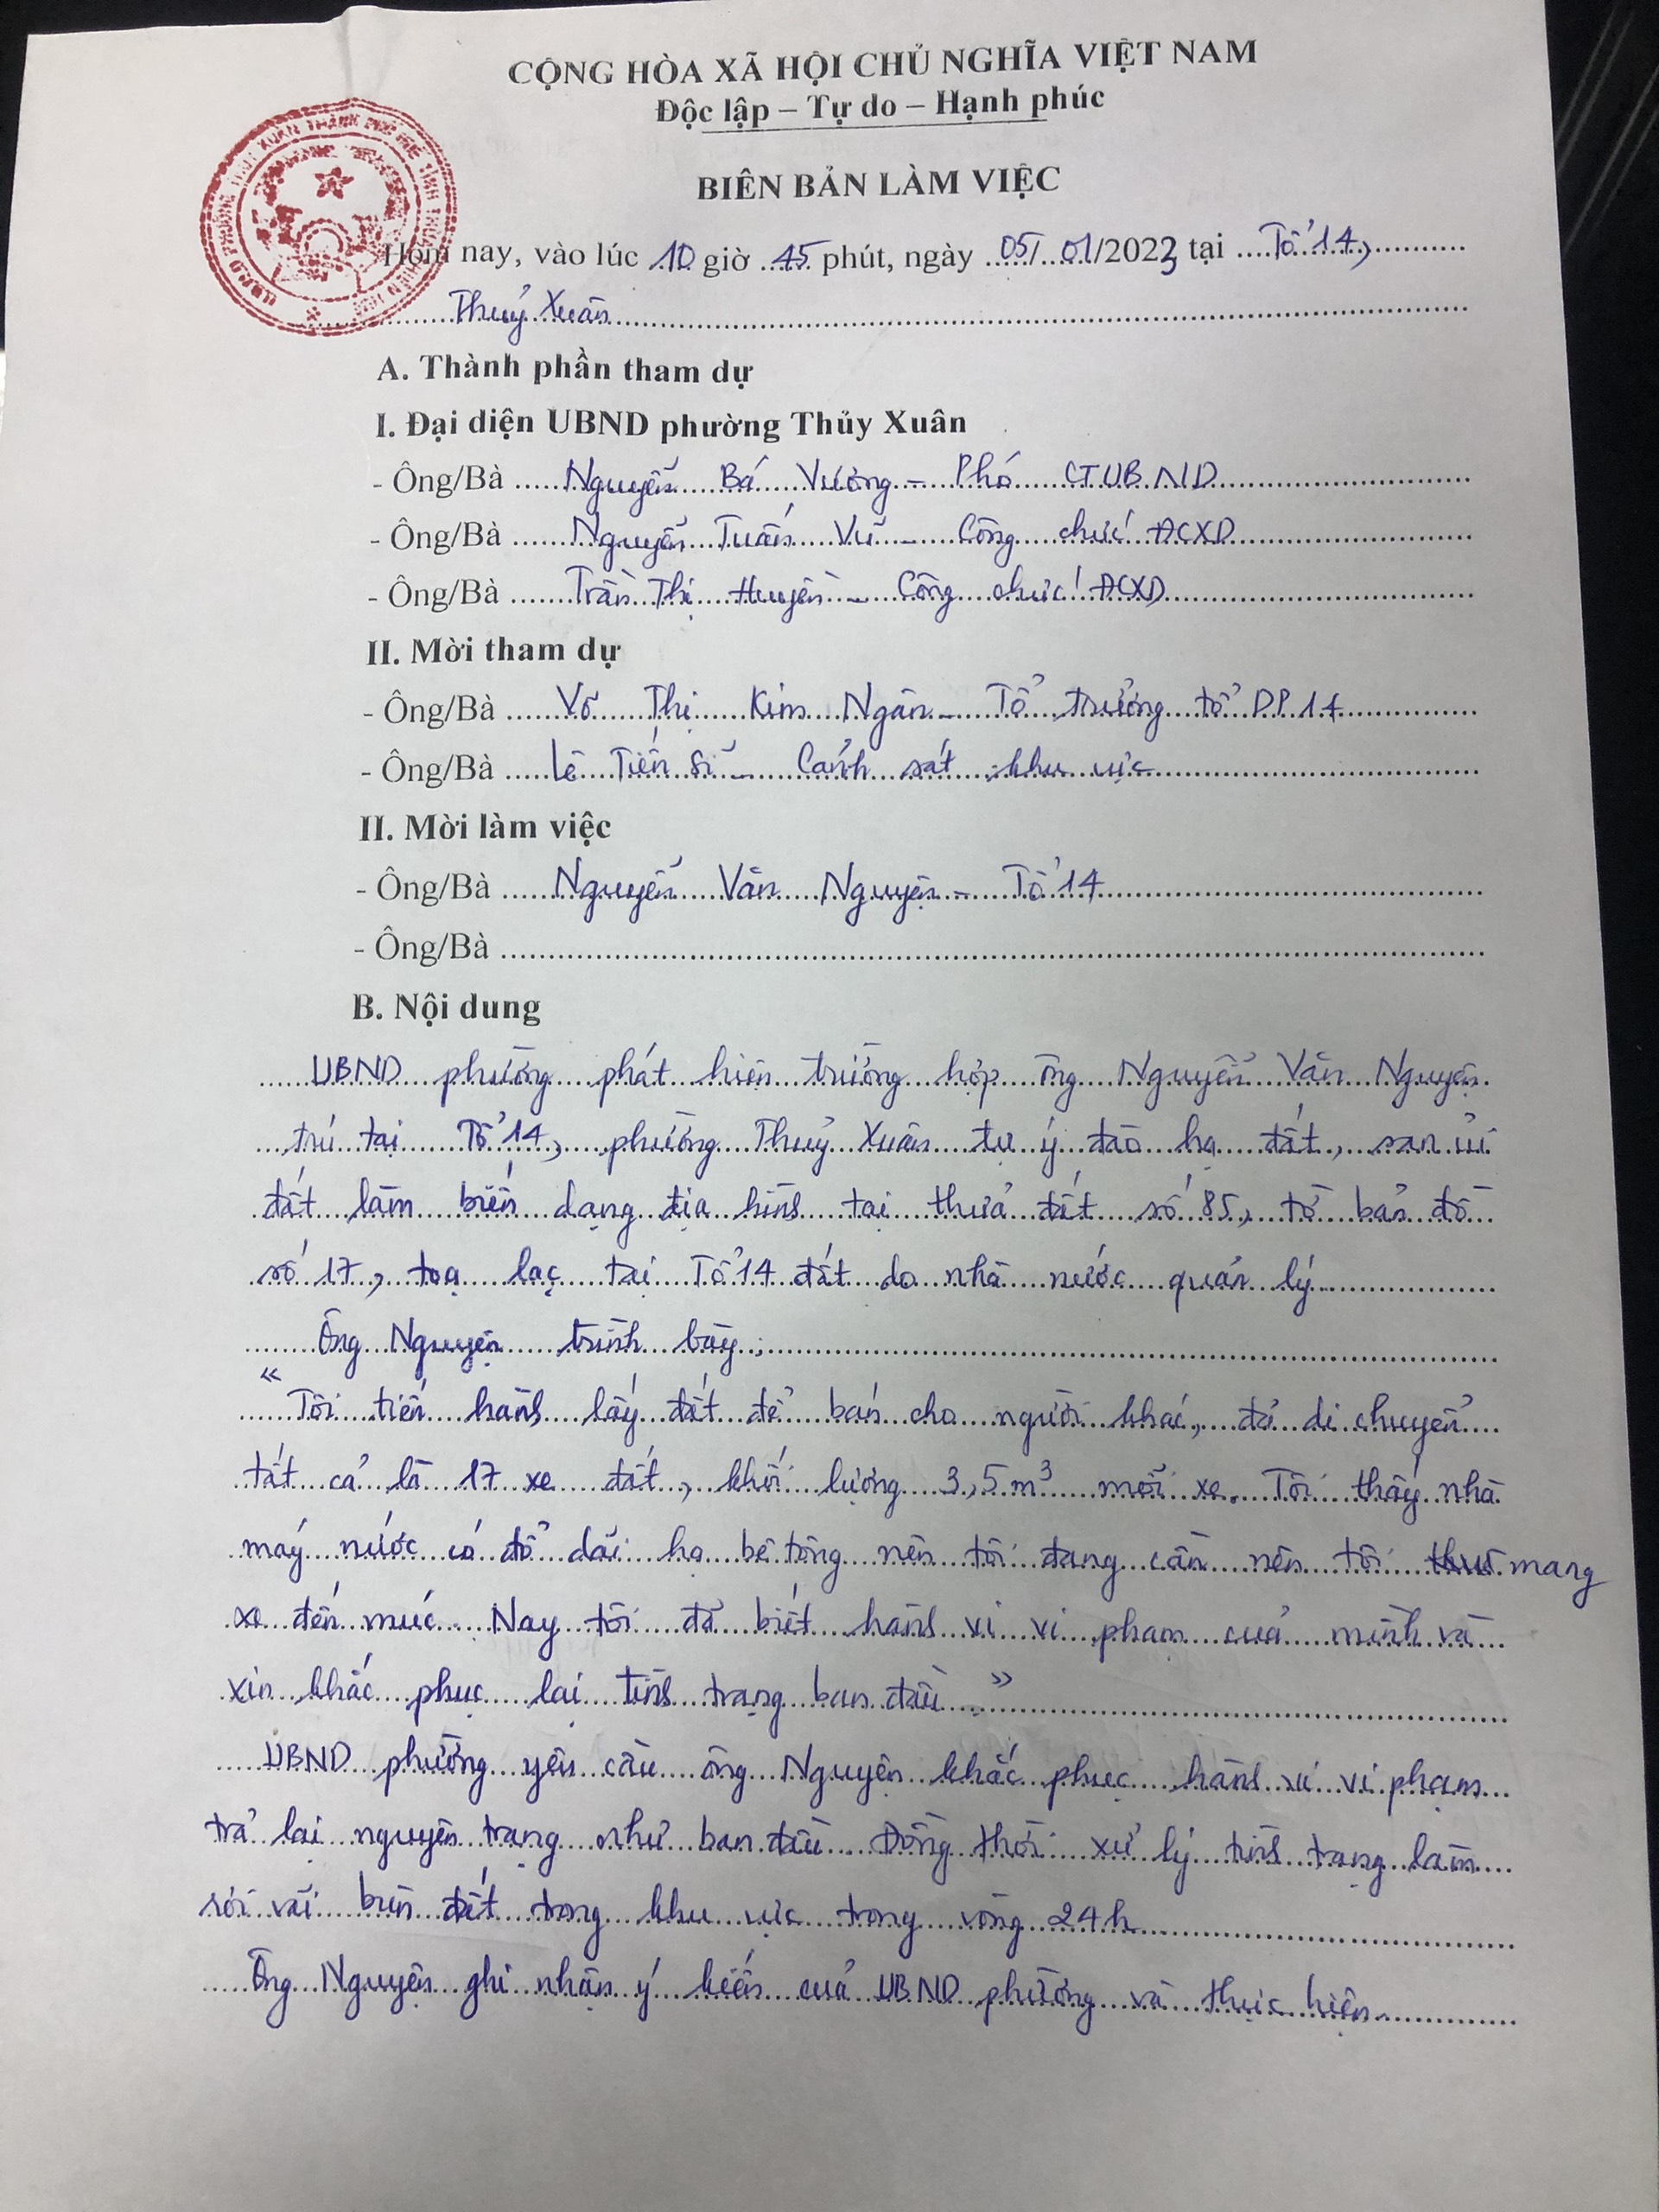 CỘNG HÒA XÃ HỘI CHỦ NGHĨA VIỆT NAM
Độc lập – Tự do – Hạnh phúc
BIÊN BẢN LÀM VIỆC
Hôm nay, vào lúc 10 giờ 45 phút, ngày 05/01/2023 tại Tổ 14,
Thuỷ Xuân
A. Thành phần tham dự
I. Đại diện UBND phường Thủy Xuân
- Ông/Bà Nguyễn Bá Vương - Phó CTUBND
- Ông/Bà Nguyễn Tuấn Vũ - Công chức ĐCXD
- Ông/Bà Trần Thị Huyền - Công chức ĐCXD
II. Mời tham dự
- Ông/Bà Võ Thị Kim Ngân - Tổ trưởng tổ DP 14
- Ông/Bà Lê Tiến Sĩ - Cảnh sát khu vực
II. Mời làm việc
- Ông/Bà Nguyễn Văn Nguyện - Tổ 14
- Ông/Bà
B. Nội dung
UBND phường phát hiện trường hợp ông Nguyễn Văn Nguyện
trú tại Tổ 14, phường Thuỷ Xuân tự ý đào hạ đất, san ủi
đất làm biến dạng địa hình tại thửa đất số 85, tờ bản đồ
số 17, toạ lạc tại Tổ 14 đất do nhà nước quản lý
Ông Nguyện trình bày:
“Tôi tiến hành lấy đất để bán cho người khác, đã di chuyển
tất cả là 17 xe đất, khối lượng 3,5m³ mỗi xe. Tôi thấy nhà
máy nước có đổ dải hạ bê tông nên tôi đang cần nên tôi mang
xe đến múc. Nay tôi đã biết hành vi vi phạm của mình và
xin khắc phục lại tình trạng ban đầu.”
UBND phường yêu cầu ông Nguyện khắc phục hành vi vi phạm
trả lại nguyên trạng như ban đầu. Đồng thời xử lý tình trạng làm
rơi vãi bùn đất trong khu vực trong vòng 24h
Ông Nguyện ghi nhận ý kiến của UBND phường và thực hiện.